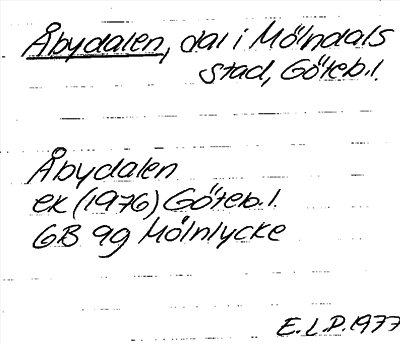 Åbydalen, dal i Mölndals
stad, Göteb.l.
Åbydalen
ek (1976) Göteb.l.
GB 9g Mölnlycke
E.L.P. 1977